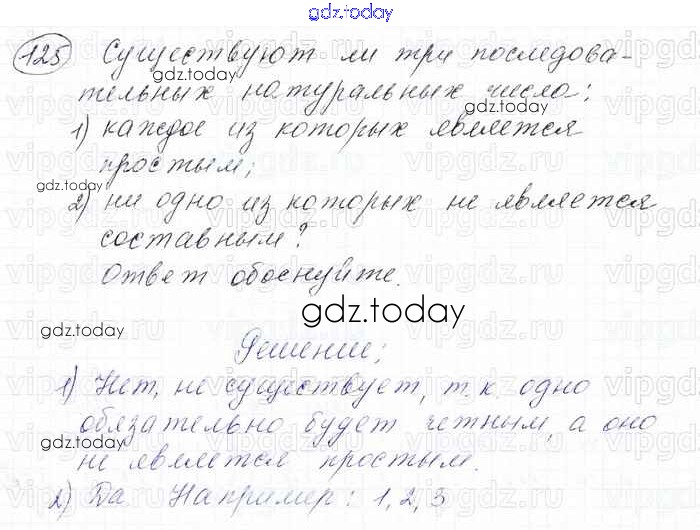 gdz.today
125 Существуют ли три последова-
gdz.today
тельных натуральных числа:
gdz.today
1) каждое из которых является
простым;
gdz.today
2) ни одно из которых не является
составным?
Ответ обоснуйте.
gdz.today
gdz.today
Решение;
1) Нет, не существует, т.к. одно
gdz.today
обязательно будет четным, а оно
не является простым.
2) Да Например: 1, 2, 3
gdz.today